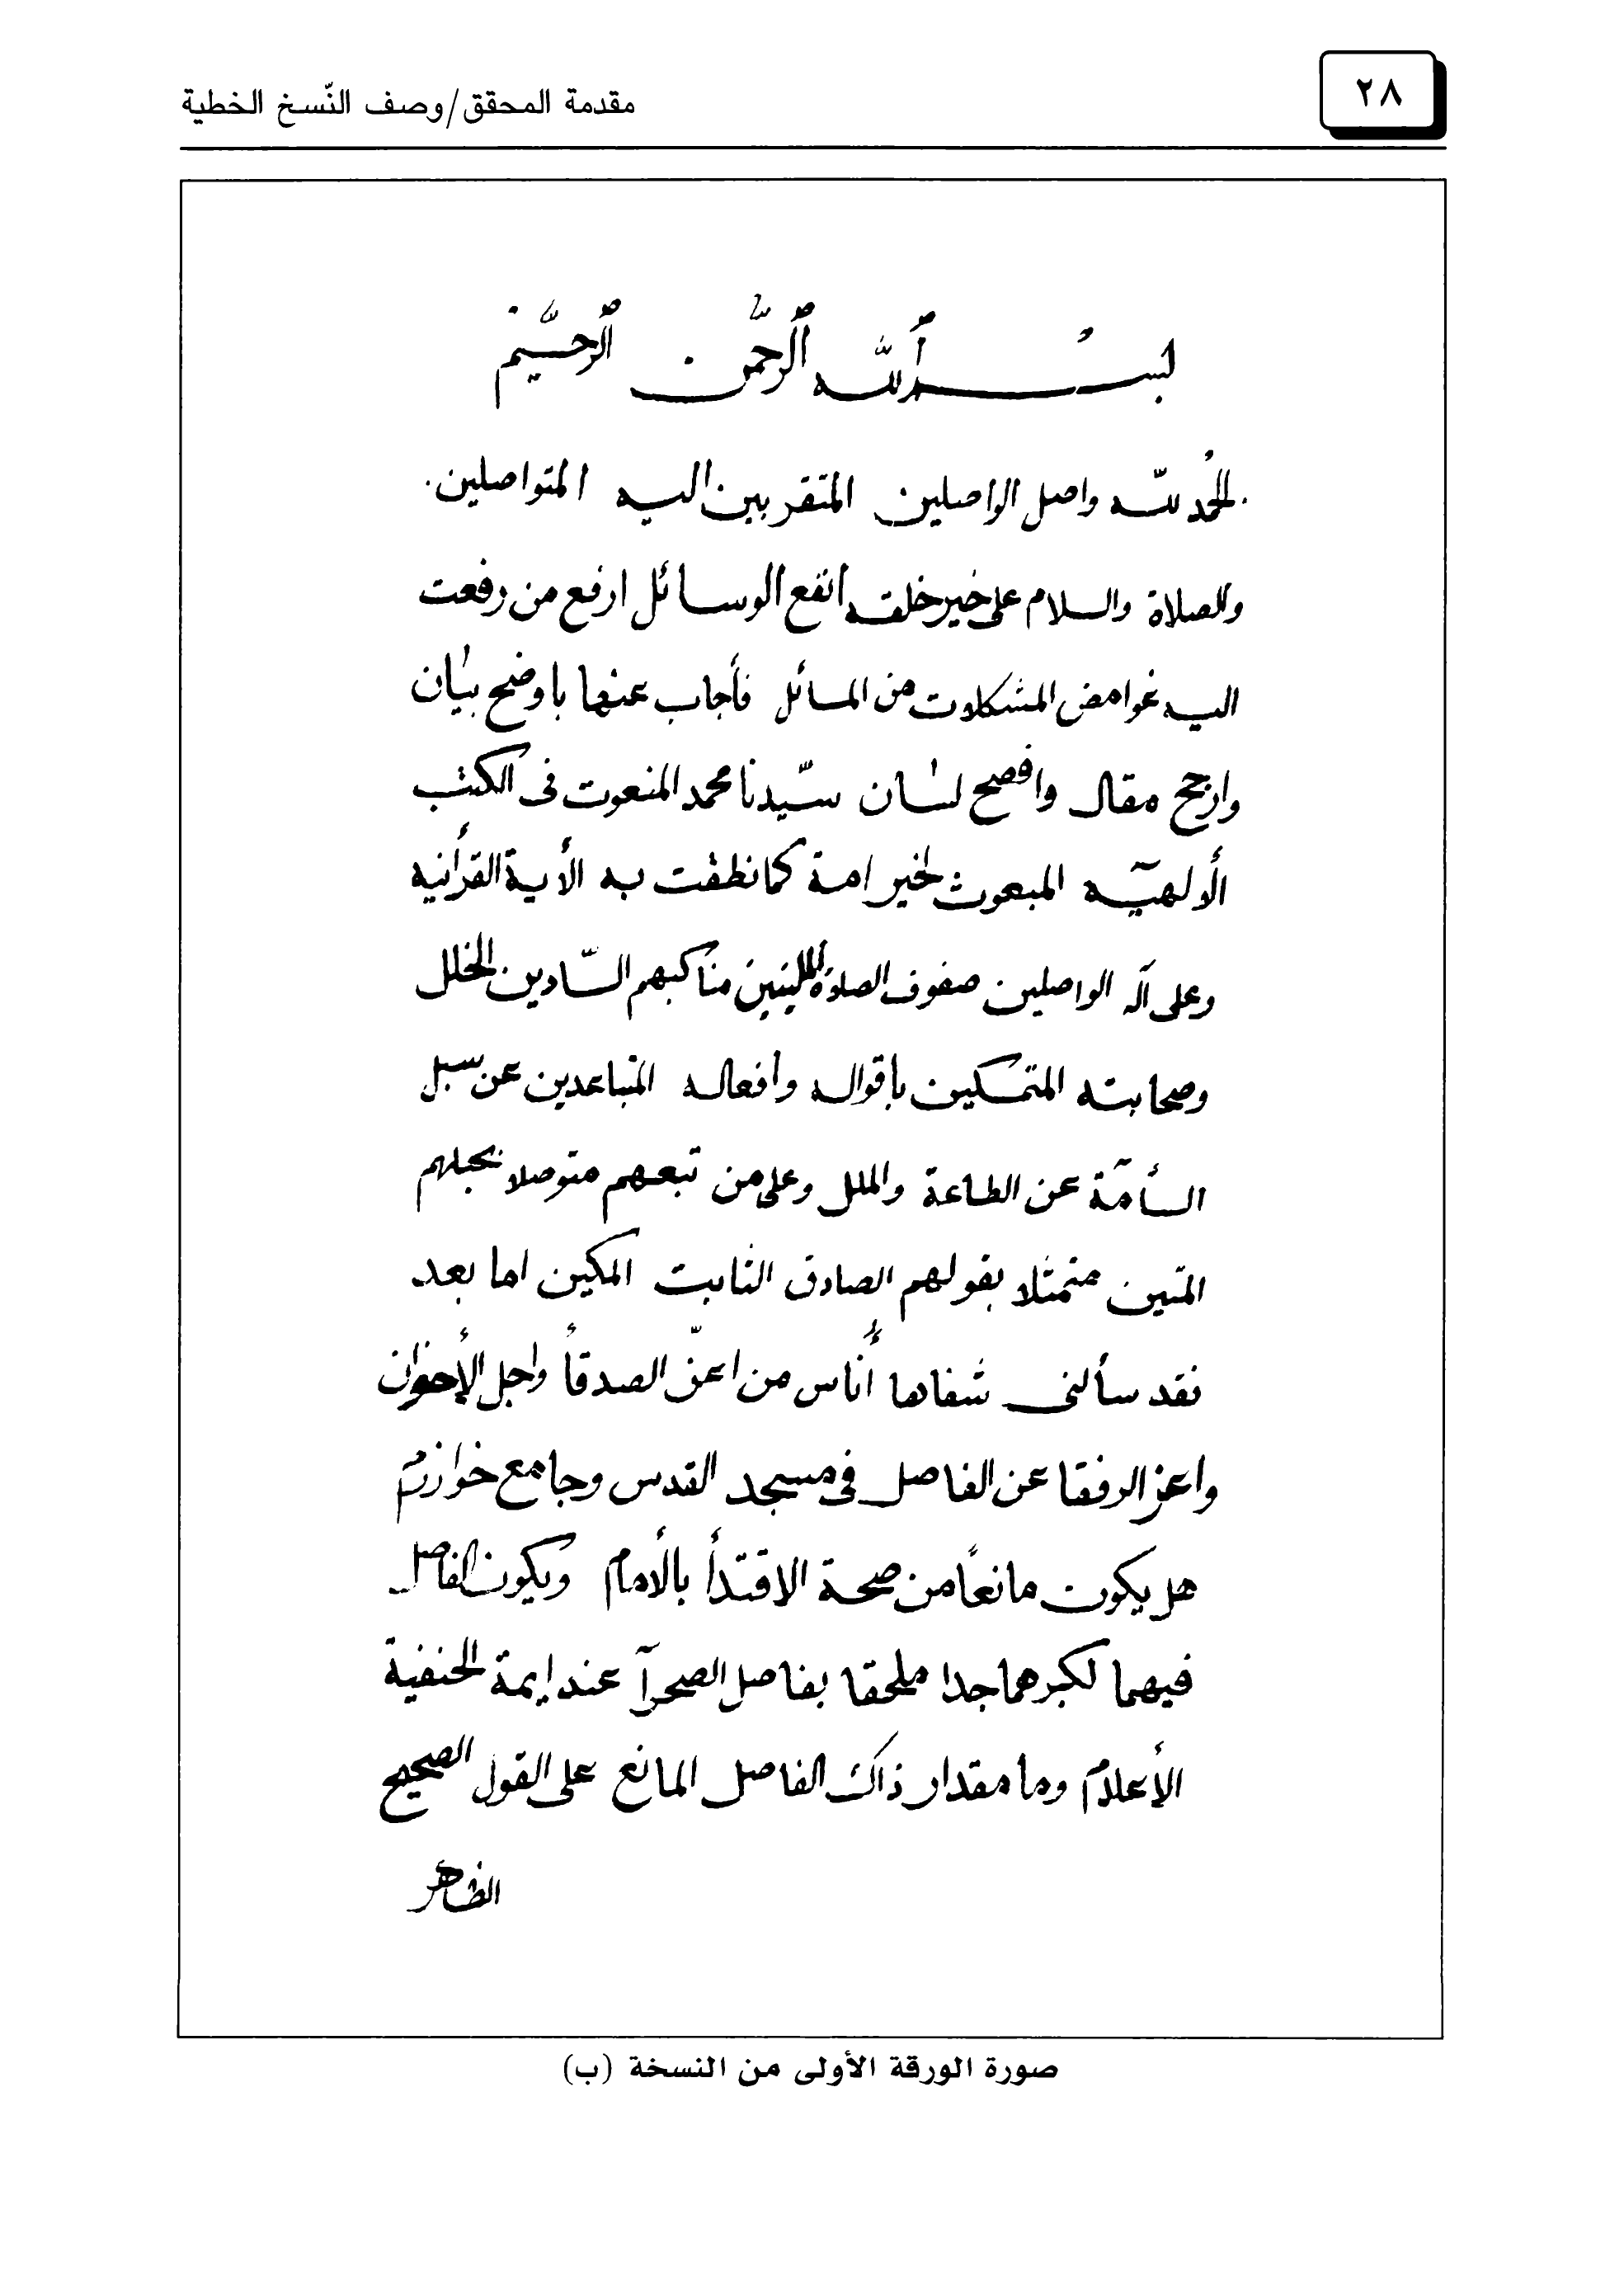 ٢٨
مقدمة المحقق/وصف النّسخ الخطية
بسم ٱلله ٱلرحمن ٱلرحيم
الحمد لله واصل الواصلين المتقربين اليه المتواصلين
والصلاة والسلام على خير خلقه انفع الوسائل ارفع من رفعت
اليه غوامض المشكلات من المسائل فأجاب عنها باوضح بيان
وارجح مقال وافصح لسان سيّدنا محمد المنعوت فى الكتب
الألهيّه المبعوث لخير امة كما نطقت به الأية القرأنيه
وعلى آله الواصلين صفوف الصلاة اللينين مناكبهم السّادين الخلل
وصحابته المتمسكين بأقواله وأفعاله المتباعدين عن سبل
السأمة عن الطاعة والملل وعلى من تبعهم متوصلا بحبلهم
المتين متمثلا بقولهم الصادق الثابت المكين اما بعد
فقد سألنى شفاها أناس من اعزّ الصدقاء واجل الأخوان
واعز الرفقا عن الفاصل فى مسجد القدس وجامع خوارزم
هل يكون مانعًا من صحة الاقتدأ بالأمام ويكون الفاصل
فيهما لكبرهما جدا ملحقا بفاصل الصحرآ عند ايمة الحنفية
الأعلام وما مقدار ذاك الفاصل المانع على القول الصحيح
الظاهر
صورة الورقة الأولى من النسخة (ب)